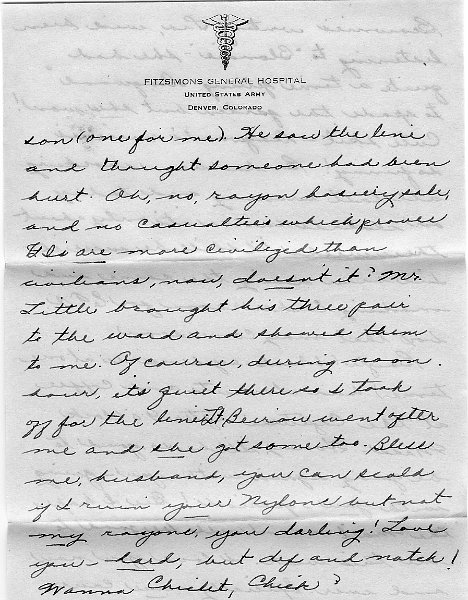 FITZSIMONS GENERAL HOSPITAL
UNITED STATES ARMY
DENVER, COLORADO
son (one for me). He saw the line
and thought someone had been
hurt. Oh, no, rayon hosiery sale,
and no casualties which proves
GIs are more civilized than
civilians, now, doesn't it? Mr.
Little brought his three pair
to the ward and showed them
to me. Of course, during noon
hour, it's quiet there so I took
off for the line. Lt. Beirow went after
me and she got some too. Bless
me, husband, you can scold
if I ruin your Nylons but not
my rayons, you darling! Love
you - hard, but def and natch!
Wanna Chiclet, Chick?